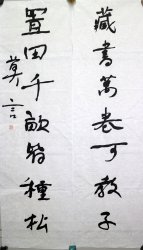 藏書萬卷可教子
置田千畝皆種松
莫言